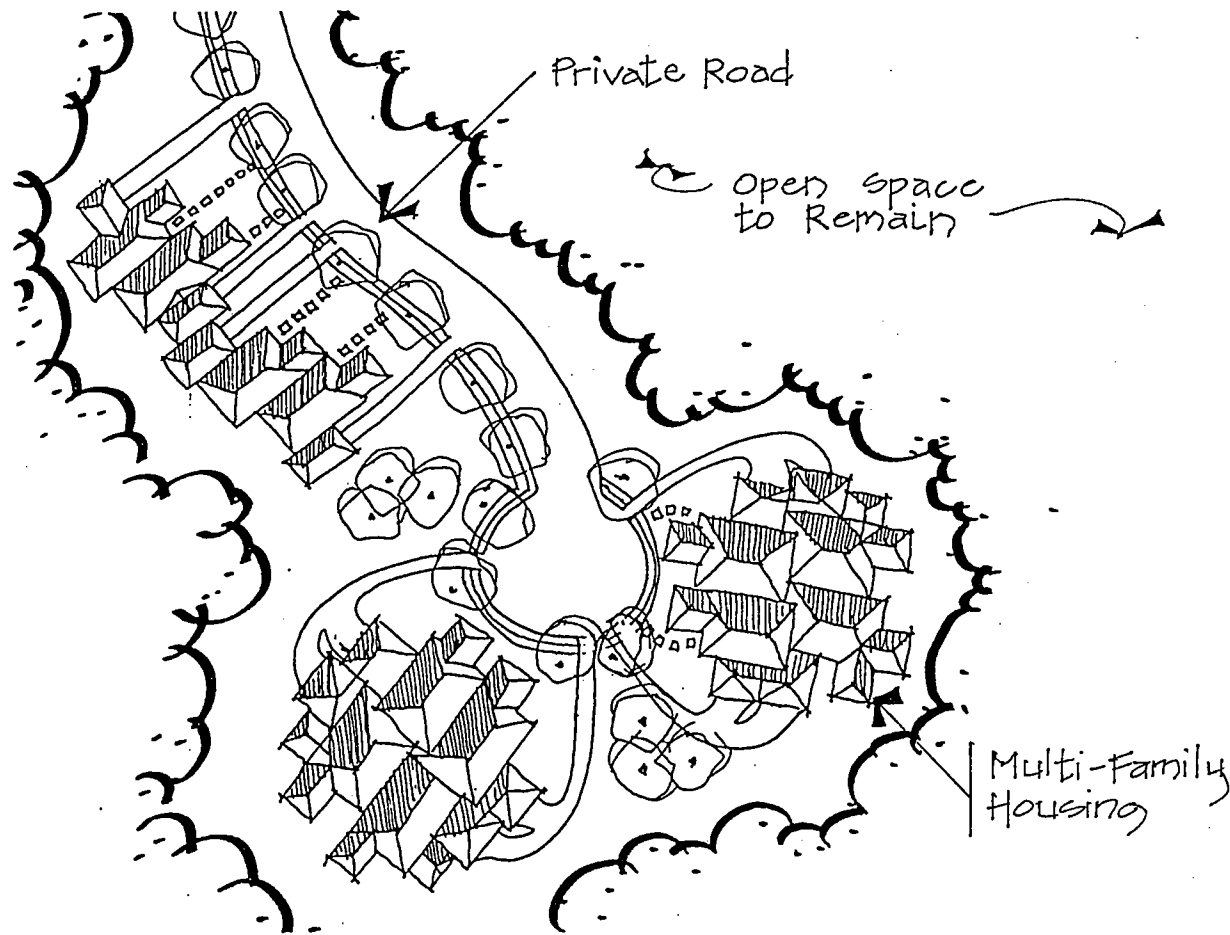 Private Road
Open Space
to Remain
Multi-Family
Housing